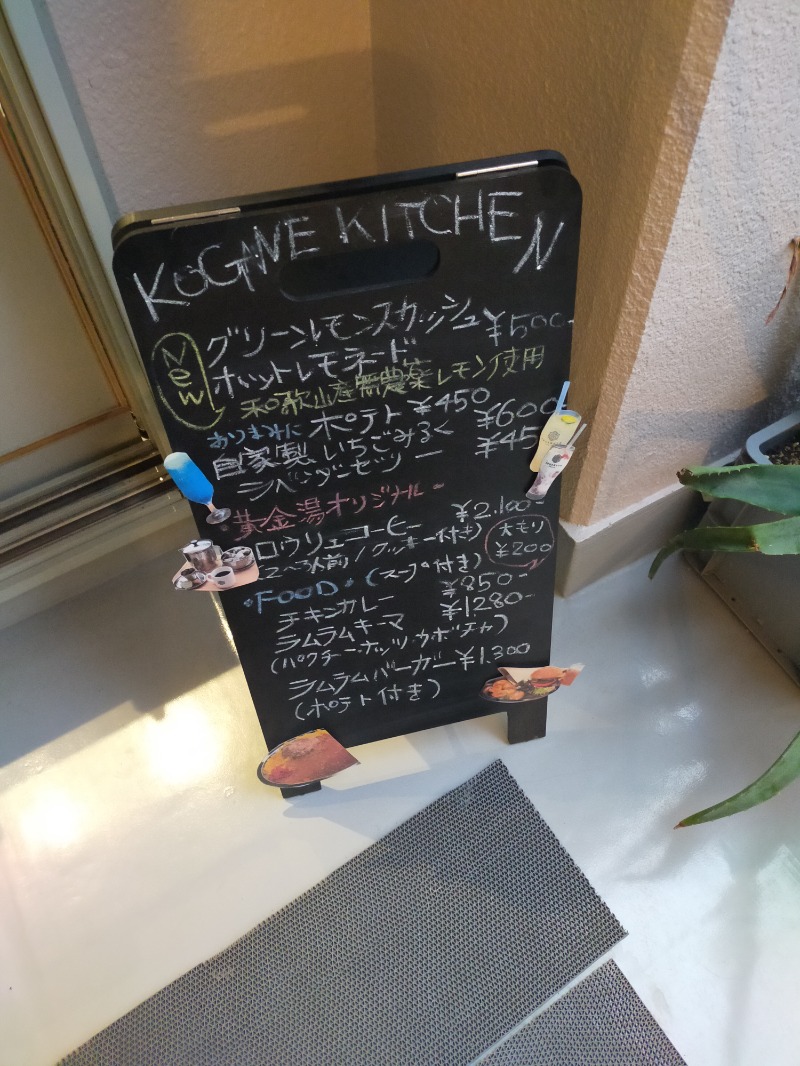 KOGANE KITCHEN
New
グリーンレモンスカッシュ ¥500-
ホットレモネード
和歌山産無農薬レモン使用
おつまみに ポテト ¥450
自家製 いちごみるく ¥600
ラベンダーゼリー ¥45
黄金湯オリジナル-
ロウリュコーヒー ¥2.100-
2~3人前/クッキー付き)
大もり
¥200
・FOOD・(スープ付き)
チキンカレー ¥850-
ラムラムキーマ ¥1280-
(パクチーナッツ、カボチャ)
ラムラムバーガー ¥1.300
(ポテト付き)